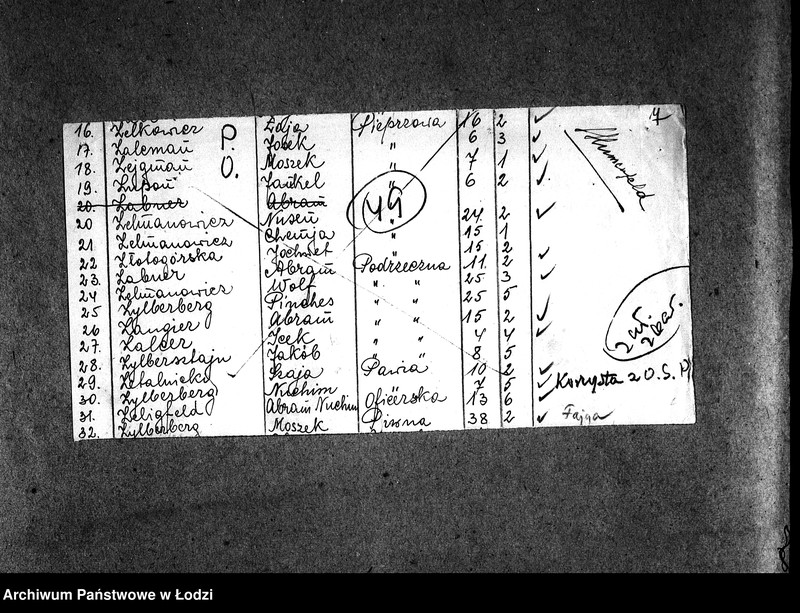 7
16. Zelkowicz Łaja Pieprzowa 16 2
17. Zaleman P. Josek " 6 3
18. Zejgman O. Moszek " 7 1
19. Zusoń Jankel " 6 2
20. Zabner Abram
49
Blumenfeld
20 Zelmanowicz Nusen " 24 2
21 Zelmanowicz Chemja " 15 1
22 Złotogórska Jochwet 15 2
23. Zabner Abram Podrzeczna 11 2
24 Zelmanowicz Wolf " " 25 3
25 Zylberberg Pinches " " 25 5
26 Zangier Abram " " 15 2
27. Zalcer Icek " " 4 4
28. Zylbersztajn Jakób " " 8 5
2 w.
29. Szaja Pawia 10 2 Korzysta z O.S.
30. Zylberberg Nuchim " 7 5
31. Zaligfeld Abram Nuchim Oficerska 13 6
32. Zylberberg Moszek Piwna 38 2 Fajga
Archiwum Państwowe w Łodzi